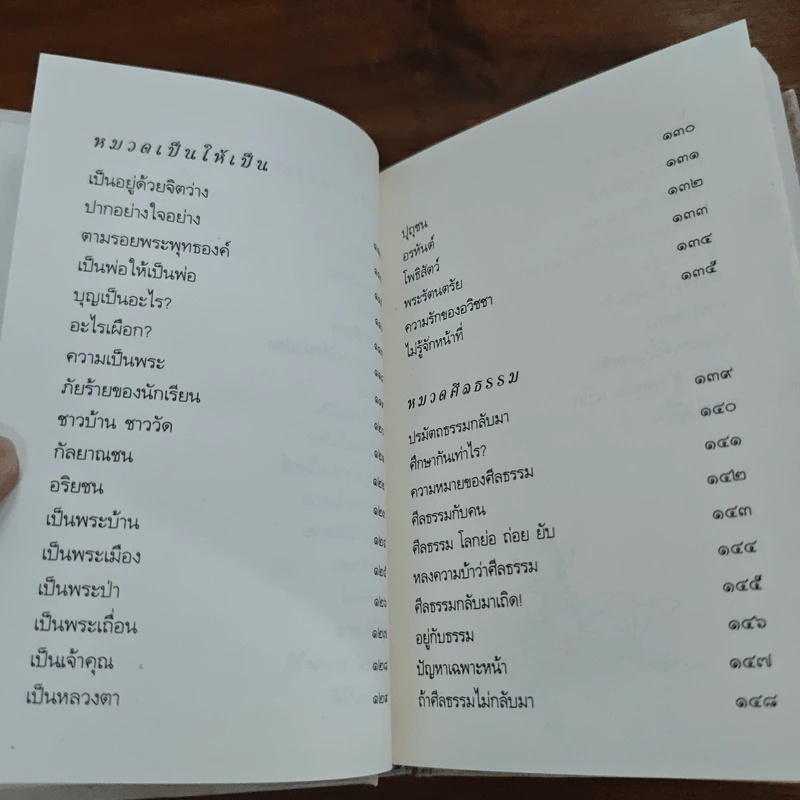 หมวดเป็นให้เป็น
เป็นอยู่ด้วยจิตว่าง
ปากอย่างใจอย่าง
ตามรอยพระพุทธองค์
เป็นพ่อให้เป็นพ่อ
บุญเป็นอะไร?
อะไรเผือก?
ความเป็นพระ
ภัยร้ายของนักเรียน
ชาวบ้าน ชาววัด
กัลยาณชน
อริยชน
เป็นพระบ้าน ๑๒๔
เป็นพระเมือง ๑๒๕
เป็นพระป่า ๑๒๖
เป็นพระเถื่อน ๑๒๗
เป็นเจ้าคุณ ๑๒๘
เป็นหลวงตา ๑๒๙
ปุถุชน ๑๓๐
อรหันต์ ๑๓๑
โพธิสัตว์ ๑๓๒
พระรัตนตรัย ๑๓๓
ความรักของอวิชชา ๑๓๔
ไม่รู้จักหน้าที่ ๑๓๕
หมวดศีลธรรม
ปรมัตถธรรมกลับมา ๑๓๙
ศึกษากันเท่าไร? ๑๔๐
ความหมายของศีลธรรม ๑๔๑
ศีลธรรมกับคน ๑๔๒
ศีลธรรม โลกย่อ ถ่อย ยับ ๑๔๓
หลงความบ้าว่าศีลธรรม ๑๔๔
ศีลธรรมกลับมาเถิด! ๑๔๕
อยู่กับธรรม ๑๔๖
ปัญหาเฉพาะหน้า ๑๔๗
ถ้าศีลธรรมไม่กลับมา ๑๔๘